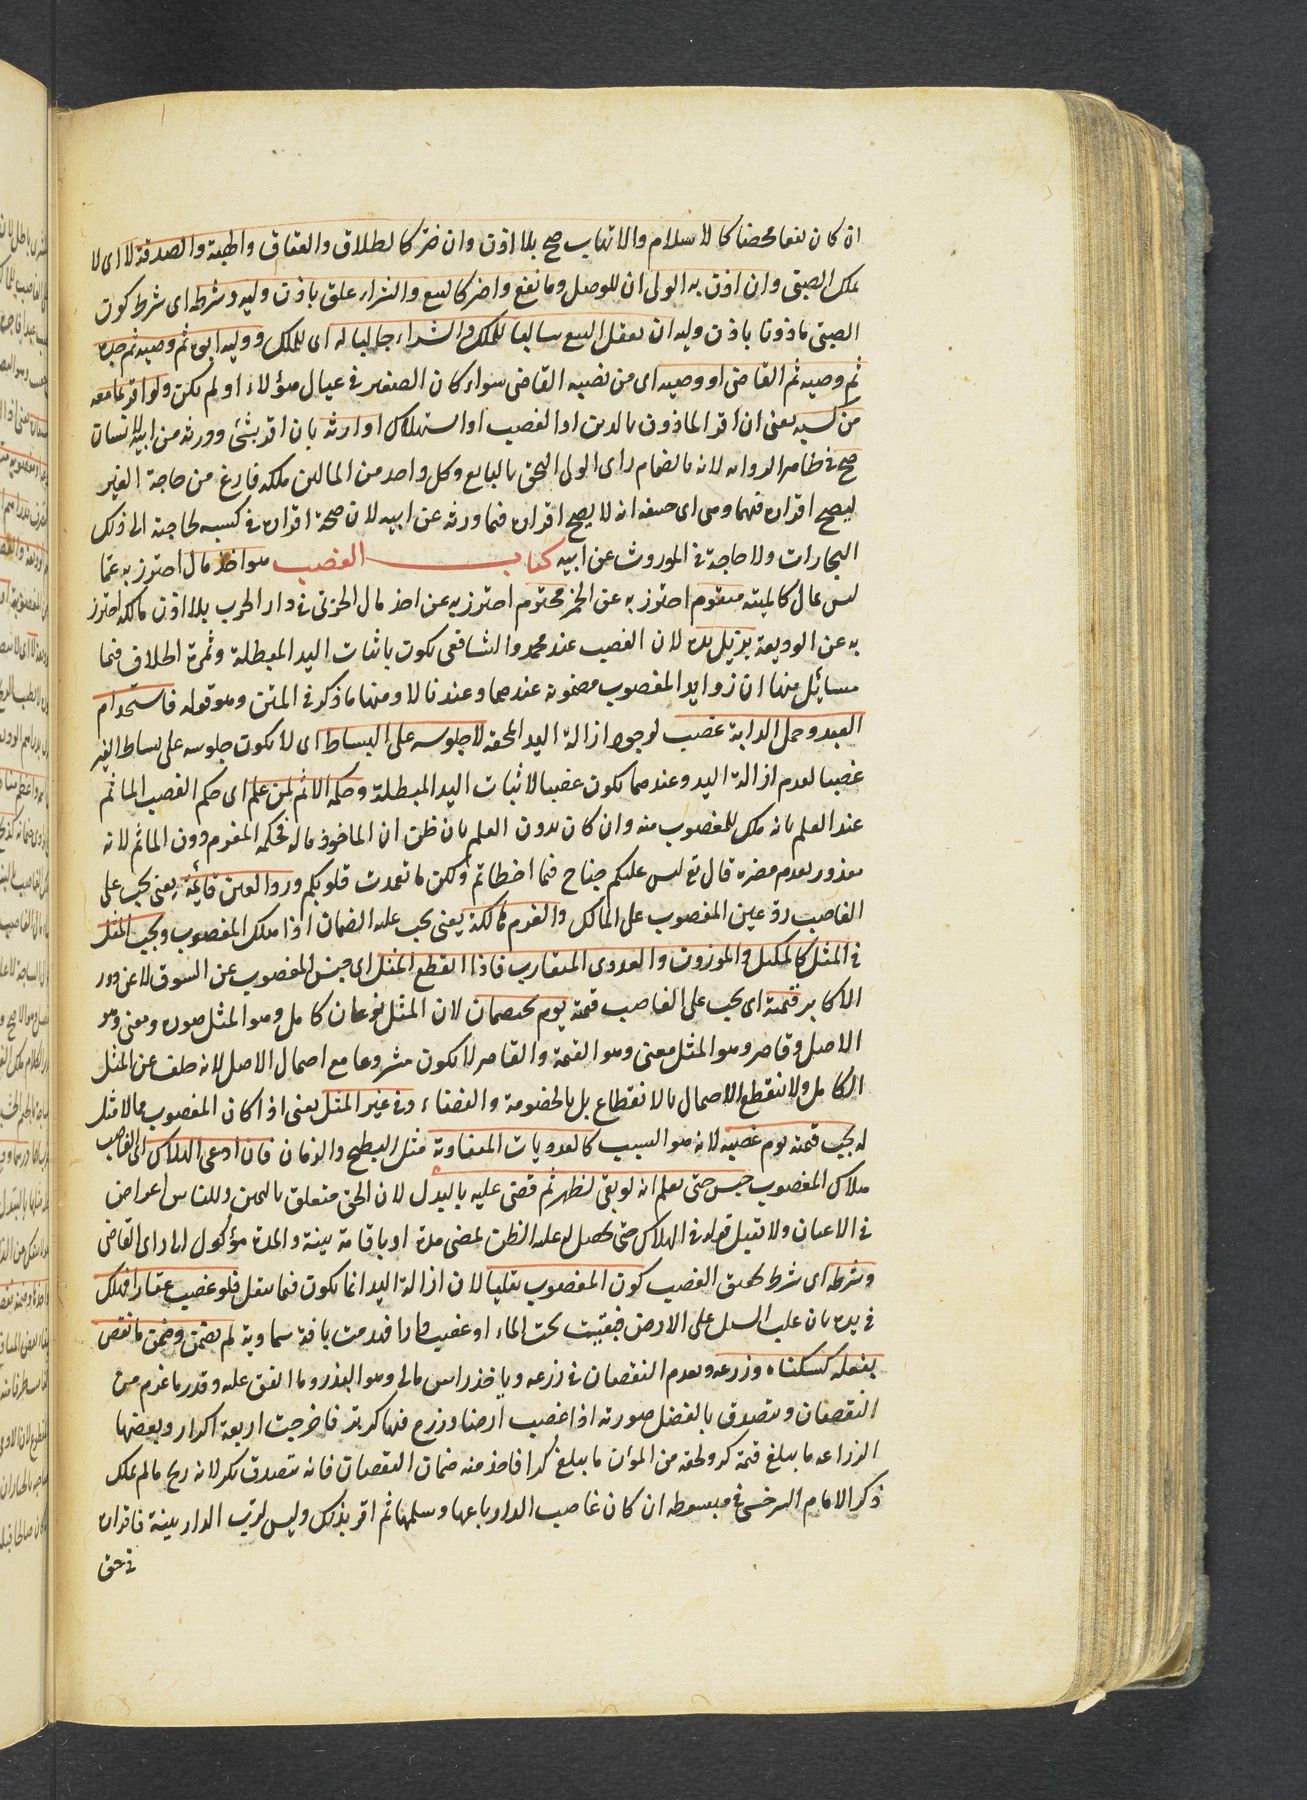 ان كان نفعا محضا كالاسلام والاتهاب صح بلا اذن وان ضر كالطلاق والعتاق والهبة والصدقة لا اى لا
يملك الصبى وان اذن به الولى ان للوصل وما نفع واضر كالبيع والشراء علق باذن وليه وشرطه اى شرط كون
الصبى ماذونا باذن وليه ان يعقل البيع سالبا للملك والشراء جالبا له اى للملك ووليه ابوه ثم وصيه ثم جده
ثم وصيه ثم القاضى او وصيه اى من نصبه القاضى سواء كان الصغير فى عيال هؤلاء او لم يكن ولو اقر بما معه
من كسبه يعنى ان اقر الماذون بالدين او الغصب او استهلاك او ارثه بان اقر بشئ وورثه من ابيه لانسان
صح فى ظاهر الروايه لانه بانضمام راى الولى التحق بالبالغ وكل واحد من المالين ملكه فارغ عن حاجة الغير
ليصح اقراره فيهما وروى ابى حنيفه انه لا يصح اقراره فيما ورثه عن ابيه لان صحة اقراره فى كسبه لحاجته الى ذلك
التجارات ولا حاجة فى الموروث عن ابيه كتاب الغصب هو اخذ مال احترز به عما
ليس بمال كالميتة متقوم احترز به عن الخمر محترم احترز به عن اخذ مال الحربى فى دار الحرب بلا اذن مالكه احترز
به عن الوديعة بزيل يده لان الغصب عند محمد والشافعى يكون باثبات اليد المبطلة وثمرة الخلاف فيما
مسائل منها ان زوايد المغصوب مضمونه عندهما وعندنا لا ومنها ما ذكر فى المتن وهو قوله فاستخدام
العبد وحمل الدابة غصب لوجود ازالة اليد المحقه لا جلوسه على البساط اى لا يكون جلوسه على بساط الغير
غصبا لعدم ازالة اليد وعندهما يكون غصبا لاثبات اليد المبطلة وحكمه الاثم لمن علم اى حكم الغصب الماثم
عند العلم بانه ملك للمغصوب منه وان كان بدون العلم بان ظن ان الماخوذ ماله فحكمه المغرم دون الماثم لانه
معذور بعدم مضره قال تع ليس عليكم جناح فيما اخطاتم ولكن ما تعمدت قلوبكم ورد العين قائمة يعنى يجب على
الغاصب رد عين المغصوب على المالك والغرم هالكة يعنى يجب عليه الضمان اذا هلك المغصوب ويجب المثل
فى المثلى كالمكيل والموزون والعددى المتقارب فاذا انقطع المثل اى جنس المغصوب عن السوق لا عن دور
الاكابر فقيمته اى يجب على الغاصب قيمته يوم يختصمان لان المثل نوعان كامل وهو المثل صورة ومعنى وهو
الاصل وقاصر وهو المثل معنى وهو القيمة والقاصر لا يكون مشروعا مع احتمال الاصل لانه خلف عن المثل
الكامل ولا ينقطع الاحتمال بالانقطاع بل بالخصومة والقضاء وفى غير المثلى يعنى اذا كان المغصوب مما لا مثل
له يجب قيمته يوم غصبه لانه هو السبب كالعدديات المتفاوتة مثل البطيخ والرمان فان ادعى الهلاك اى الغاصب
هلاك المغصوب حبس حتى يعلم انه لو بقى لظهر ثم قضى عليه بالبدل لان الحق متعلق بالعين وللناس اعراض
فى الاعيان ولا تقبل قوله فى الهلاك حتى يحصل له غلبه الظن بمضى مدة او باقامة بينة والمدة موكول الى راى القاضى
وشرطه اى شرط تحقق الغصب كون المغصوب نقليا لان ازالة اليد انما يكون فيما ينقل فلو غصب عقارا فهلك
فى يده بان غلب السيل على الارض فبقيت تحت الماء او غصب دارا فهدمت بافة سماوية لم يضمن وضمن ما نقص
بفعله كسكناه وزرعه وبعدم النقصان فى زرعه وياخذ راس مالى وهو البذر وما انفق عليه وقدر ما غرم من
النقصان ويتصدق بالفضل صورته اذا غصب ارضا وزرع فيها كر بر فاخرجت اربعة اكرار وبعضها
الزراعه ما يبلغ قيمة كر ولحقه من المؤن ما يبلغ كرا فاخذ منه ضمان النقصان فانه يتصدق بكر لانه ربح ما لم يملك
ذكر الامام السرخسى فى مبسوطه ان كان غاصب الدار باعها وسلمها ثم اقر بذلك وليس لرب الدار بينة فاقراره
فى حق